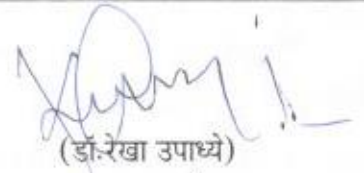 (डॉ.रेखा उपाध्ये)